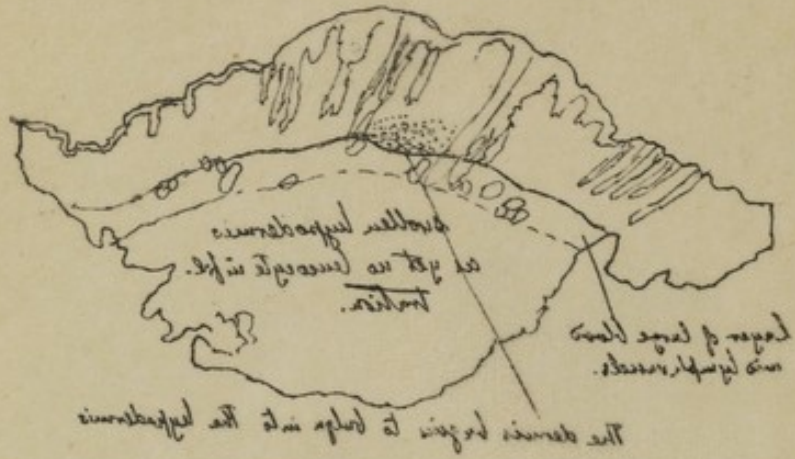 swollen hypodermis
as yet no leucocyte infil-
tration.
Layer of large blood
and lymph. vessels.
The dermis begins to bulge into the hypodermis